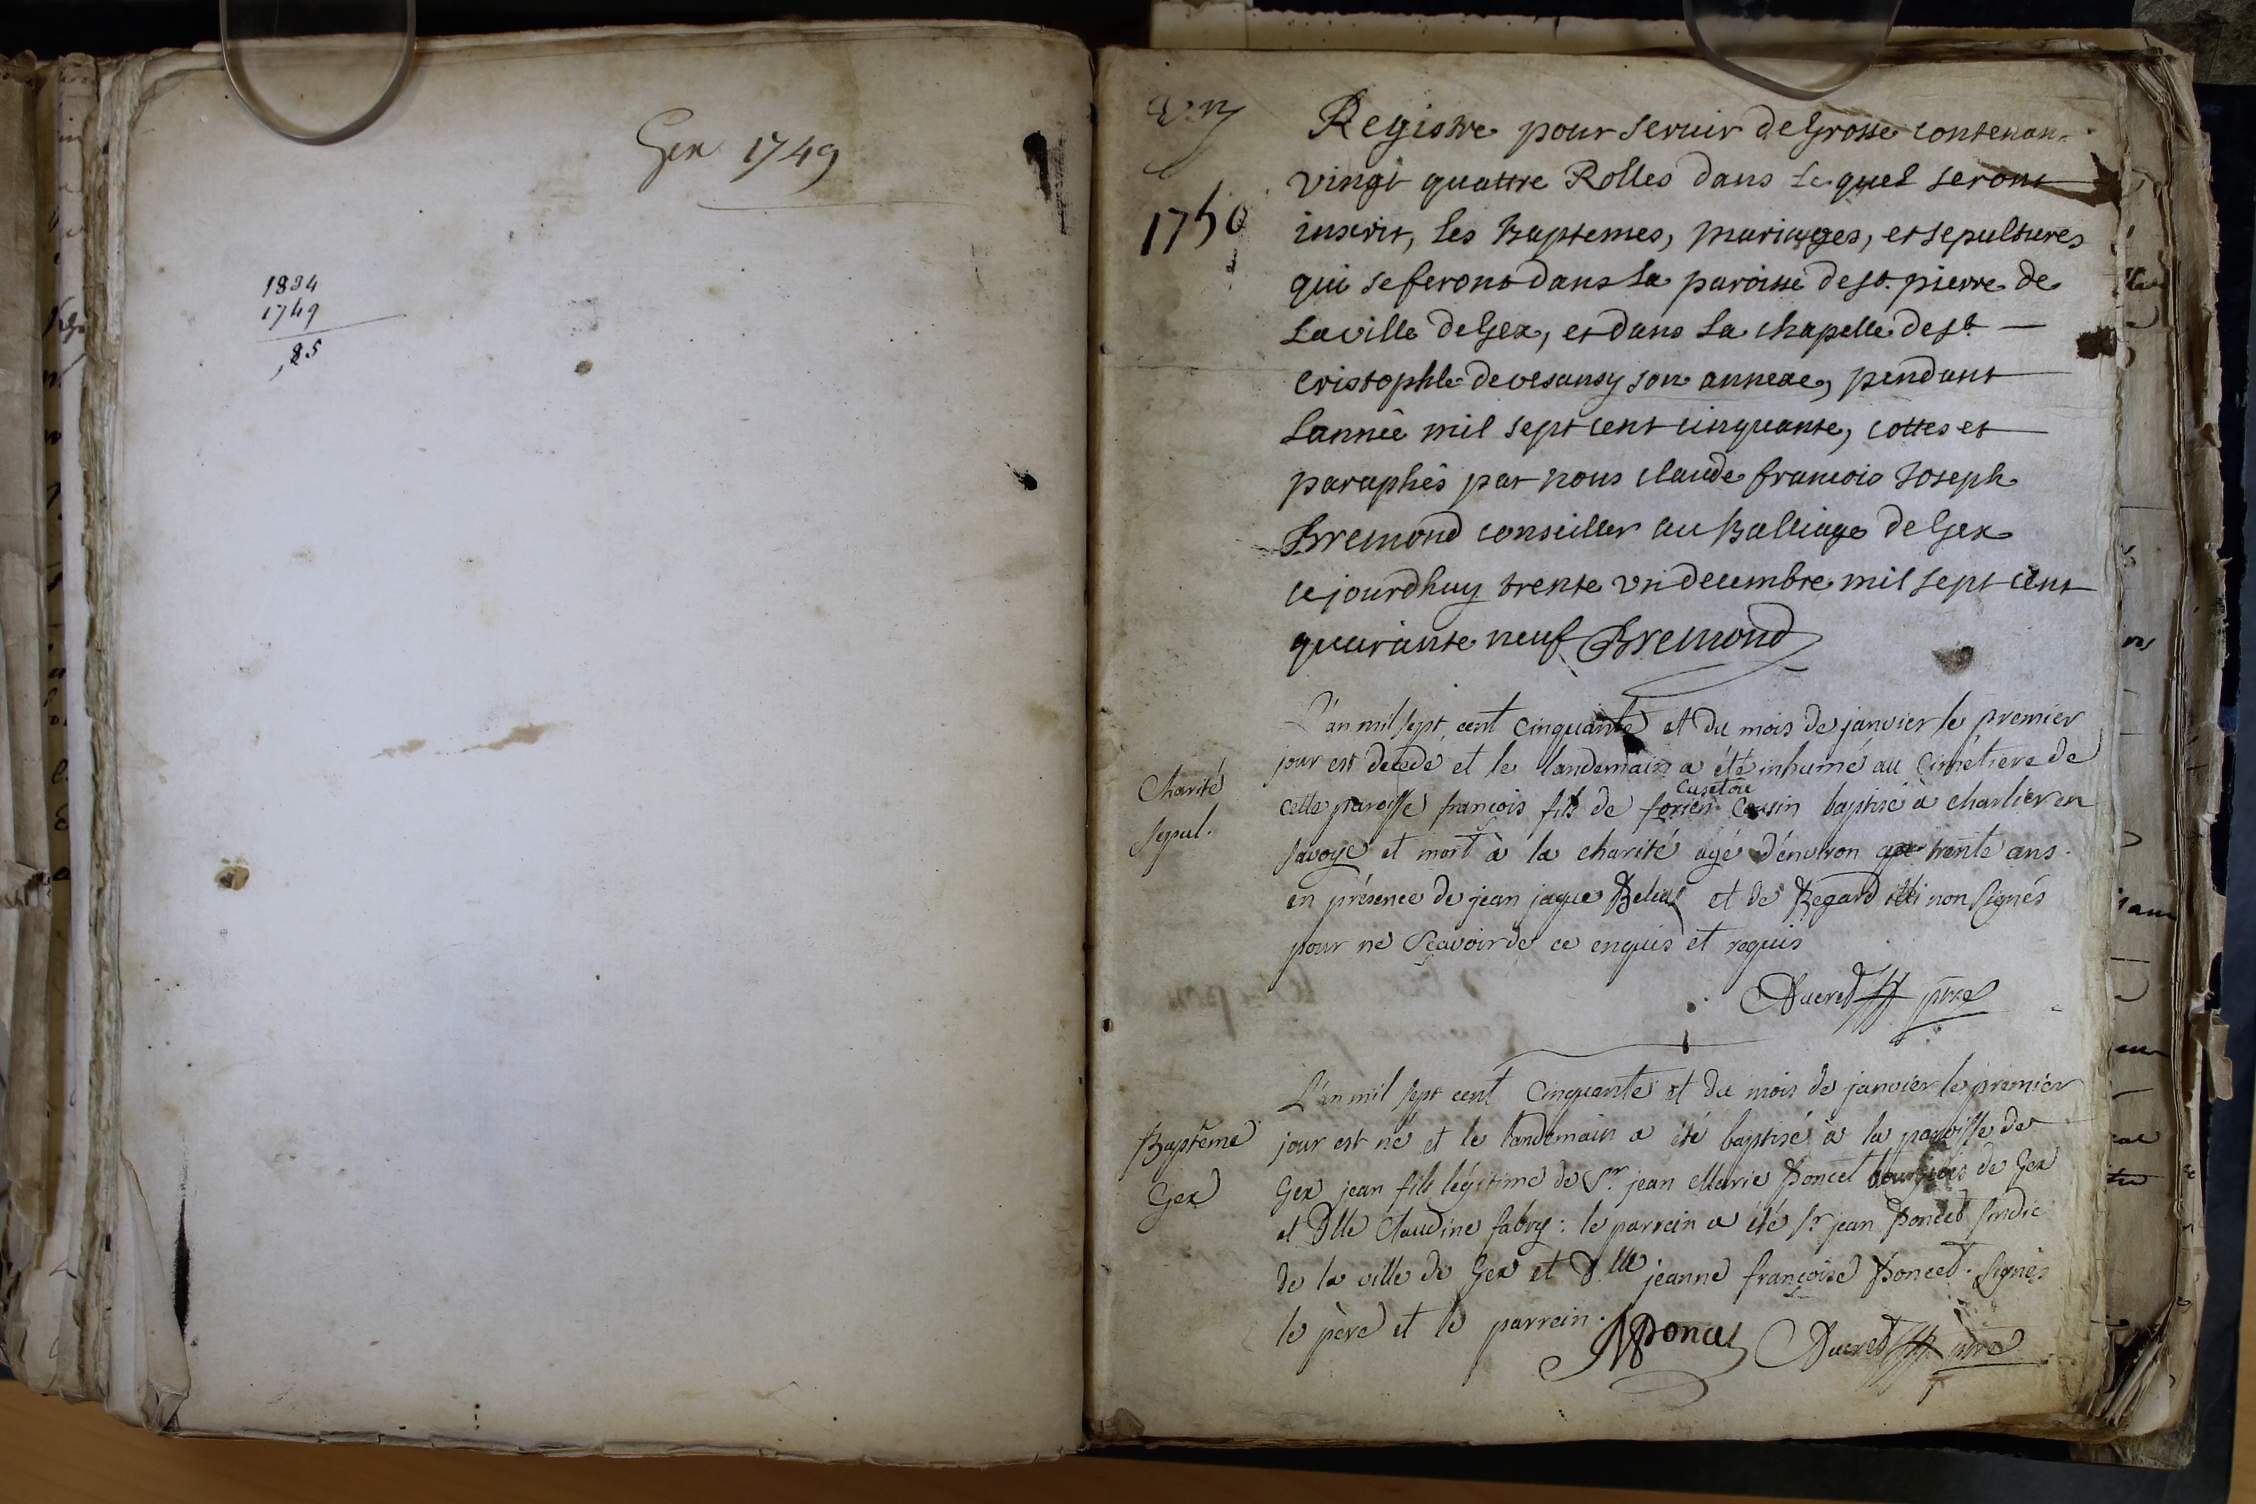 Gex 1749
1834
1749
85
1750
Registre pour servir de Grosse contenan
vingt quattre Rolles dans Lequel seront
inscrit, Les Baptemes, mariages, et sepultures
qui se feront dans La paroisse de st. pierre de
La ville de Gex, et dans La chapelle de st
Cristophle de vesansy son annexe, pendant
L'année mil sept cent cinquante, cottes et
paraphés par nous claude francois Joseph
Bremond conseiller au Balliage de Gex
ce jourdhuy trente un decembre mil sept cent
quarante neuf Bremond
Charité
sepul.
L'an mil sept cent cinquante et du mois de janvier le premier
jour est decedé et le landemain a été inhumé au cimétiere de
cette paroisse françois fils de cousin baptisé à charlier en
savoye et mort à la charité agé d'environ trente ans.
en présence de jean jaque et de Regard non signés
pour ne sçavoir de ce enquis et requis
Ducret ptre
Baptême
Gex
L'an mil sept cent cinquante et du mois de janvier le premier
jour est né et le landemain a été baptisé à la paroisse de
Gex jean fils légitime de Sr. jean Marie Poncet bourgeois de Gex
et Dlle Claudine fabry : le parrein a été Sr jean Poncet sindic
de la ville de Gex et Dlle jeanne françoise Poncet. signés
le père et le parrein.
Poncet Ducret ptre